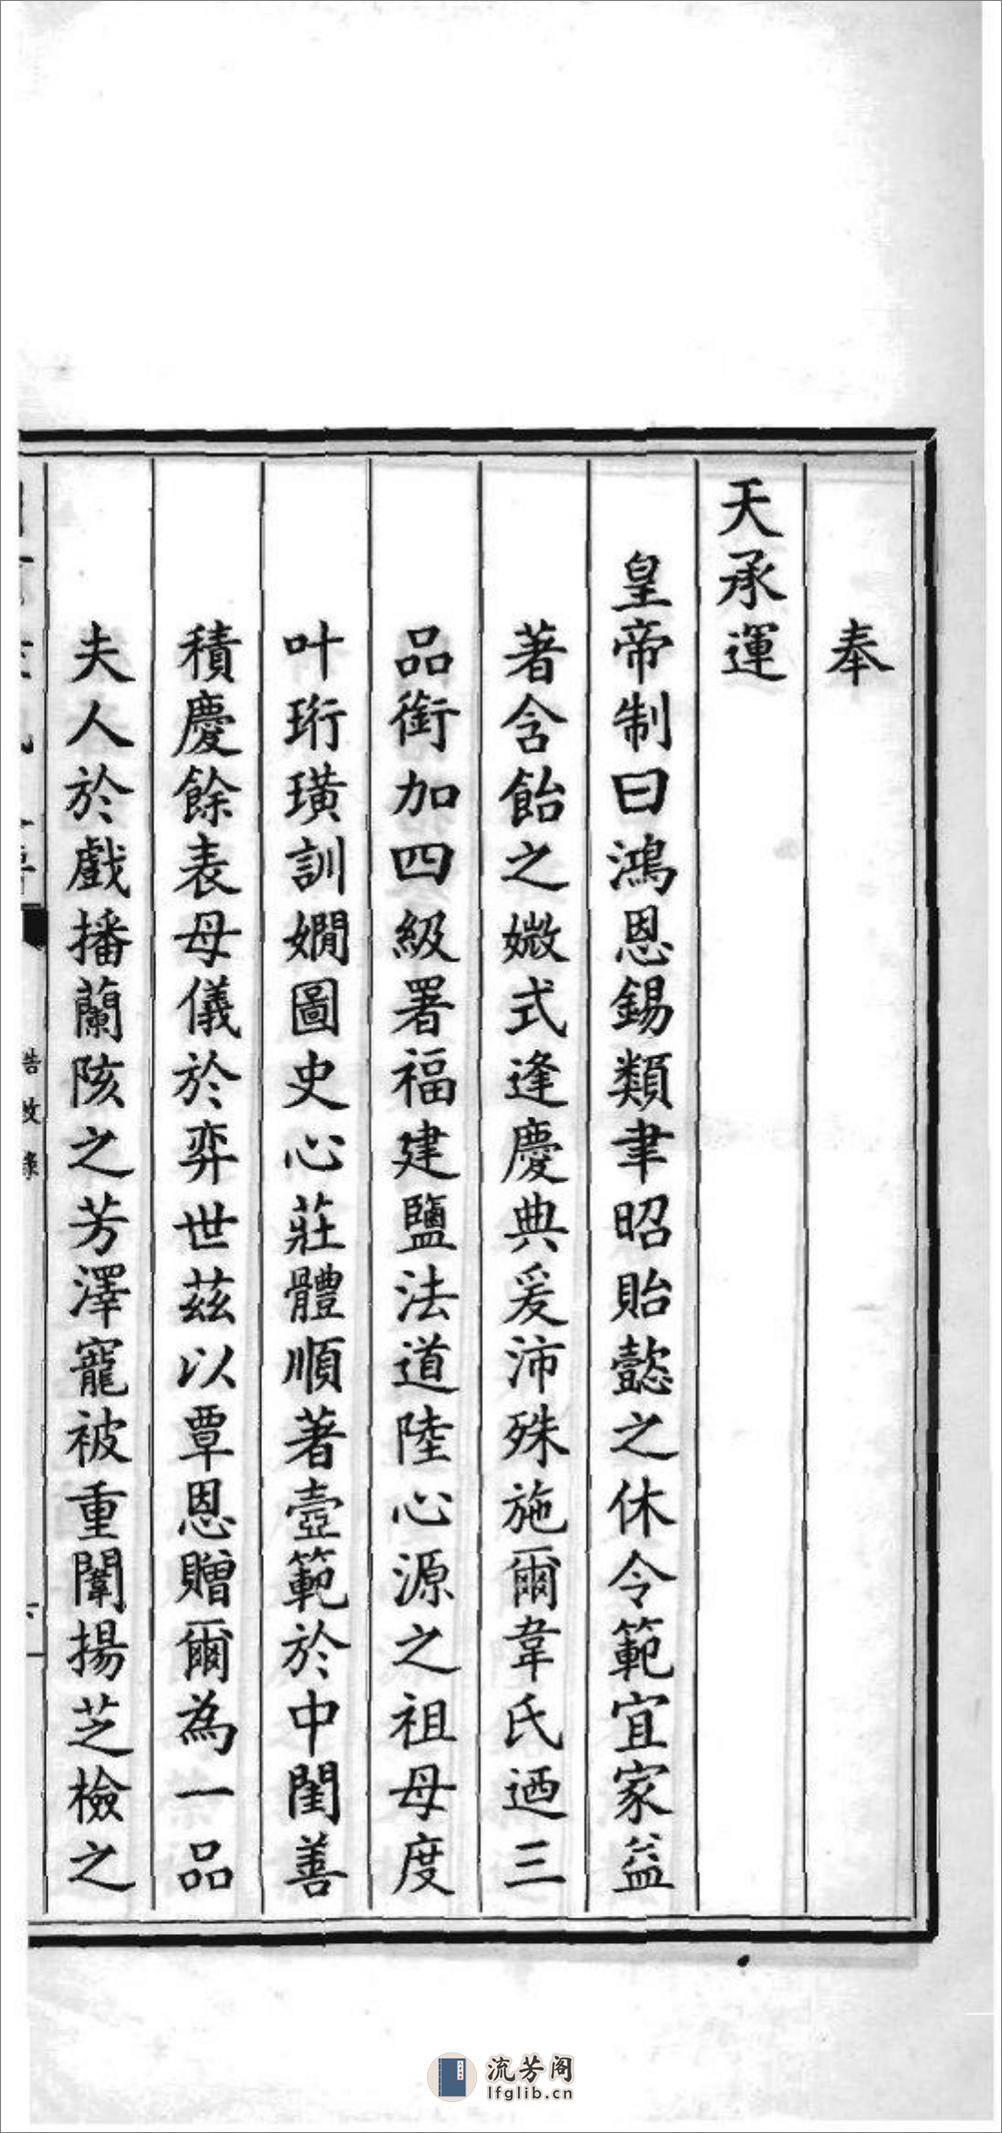 奉
天承運
皇帝制曰鴻恩錫類聿昭貽懿之休令範宜家益
著含飴之媺式逢慶典爰沛殊施爾韋氏迺三
品銜加四級署福建鹽法道陸心源之祖母度
叶珩璜訓嫺圖史心莊體順著壼範於中閨善
積慶餘表母儀於弈世茲以覃恩贈爾為一品
夫人於戲播蘭陔之芳澤寵被重闈揚芝檢之
誥敕錄
流芳阁
lfglib.cn